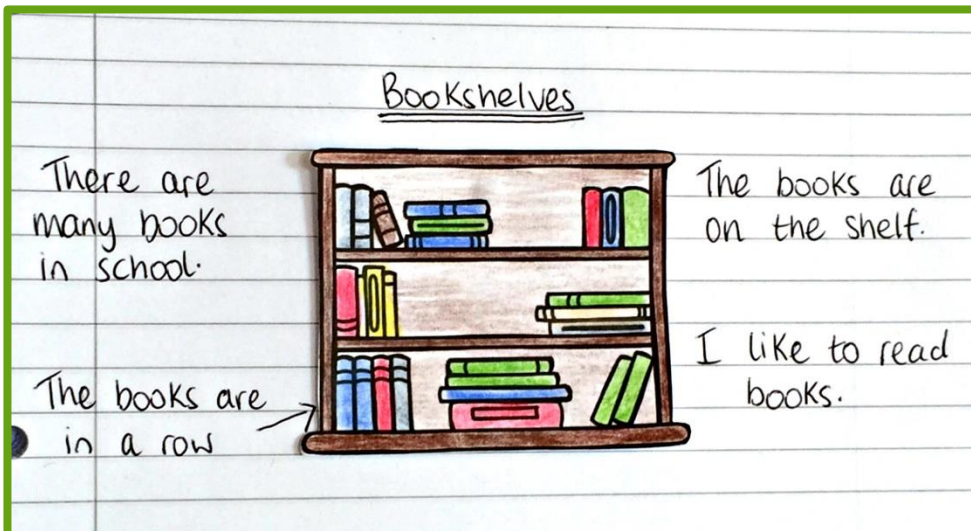 Bookshelves
There are
many books
in school.
The books are
in a row
The books are
on the shelf.
I like to read
books.